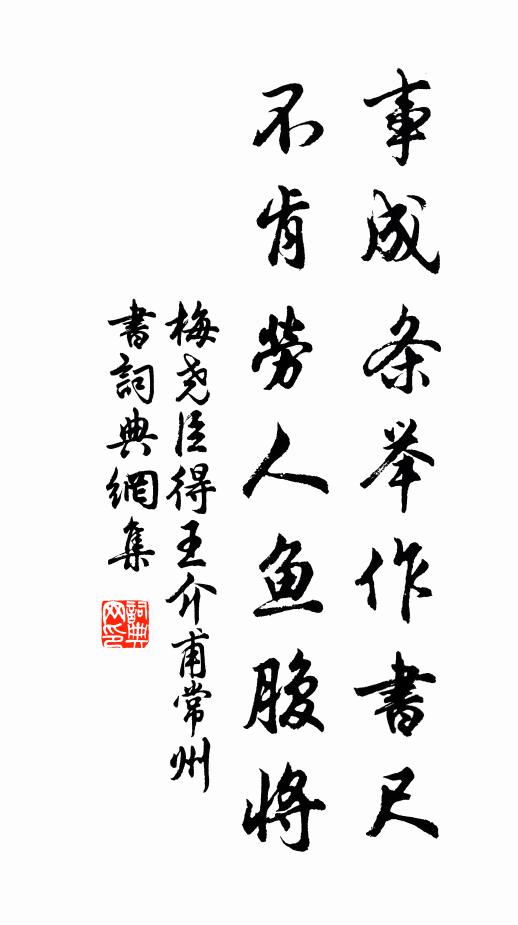 事成条举作書尺
不肯劳人鱼腹将
梅尧臣得王介甫常州
書詞典網集
詞典网印